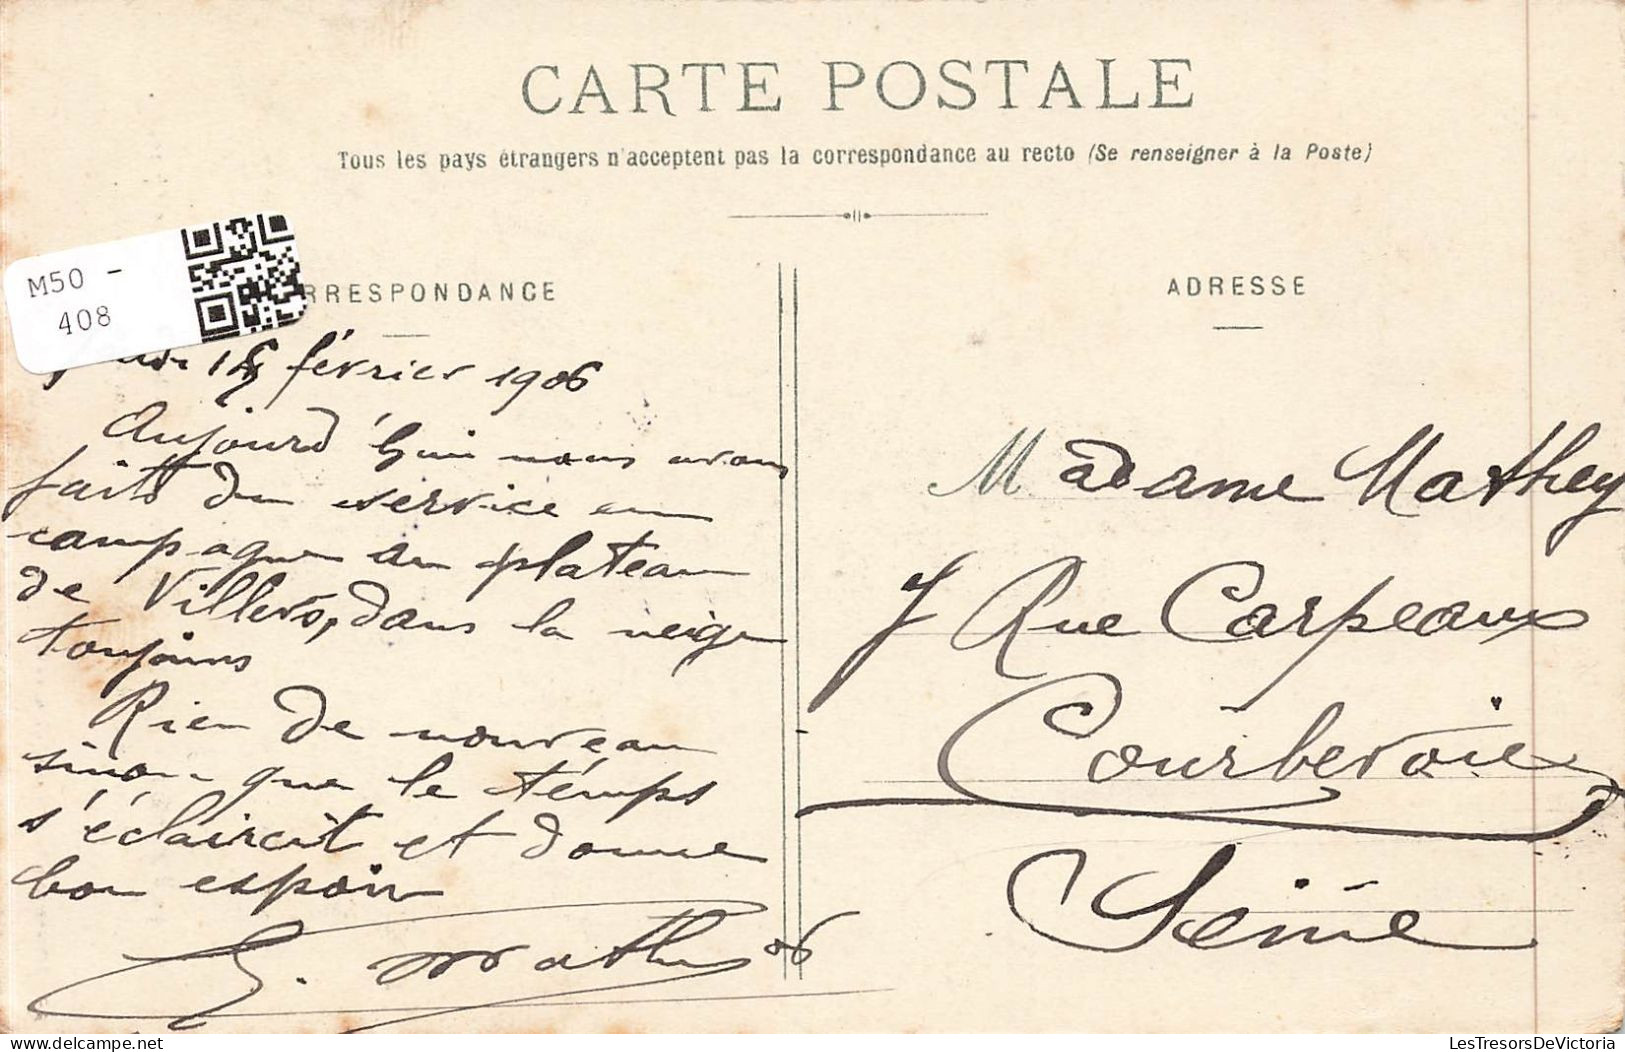 CARTE POSTALE
Tous les pays étrangers n'acceptent pas la correspondance au recto (Se renseigner à la Poste)
M50 -
408
RRESPONDANCE
février 1906
Aujourd'hui nous avons
faits du service en
campagne au plateau
de Villers, dans la neige
toujours
Rien de nouveau
sinon que le témps
s'éclaircit et donne
bon espoir
ADRESSE
Madame Mathey
7 Rue Carpeaux
Courbevoie
Seine
LesTresorsDeVictoria
delcampe.net